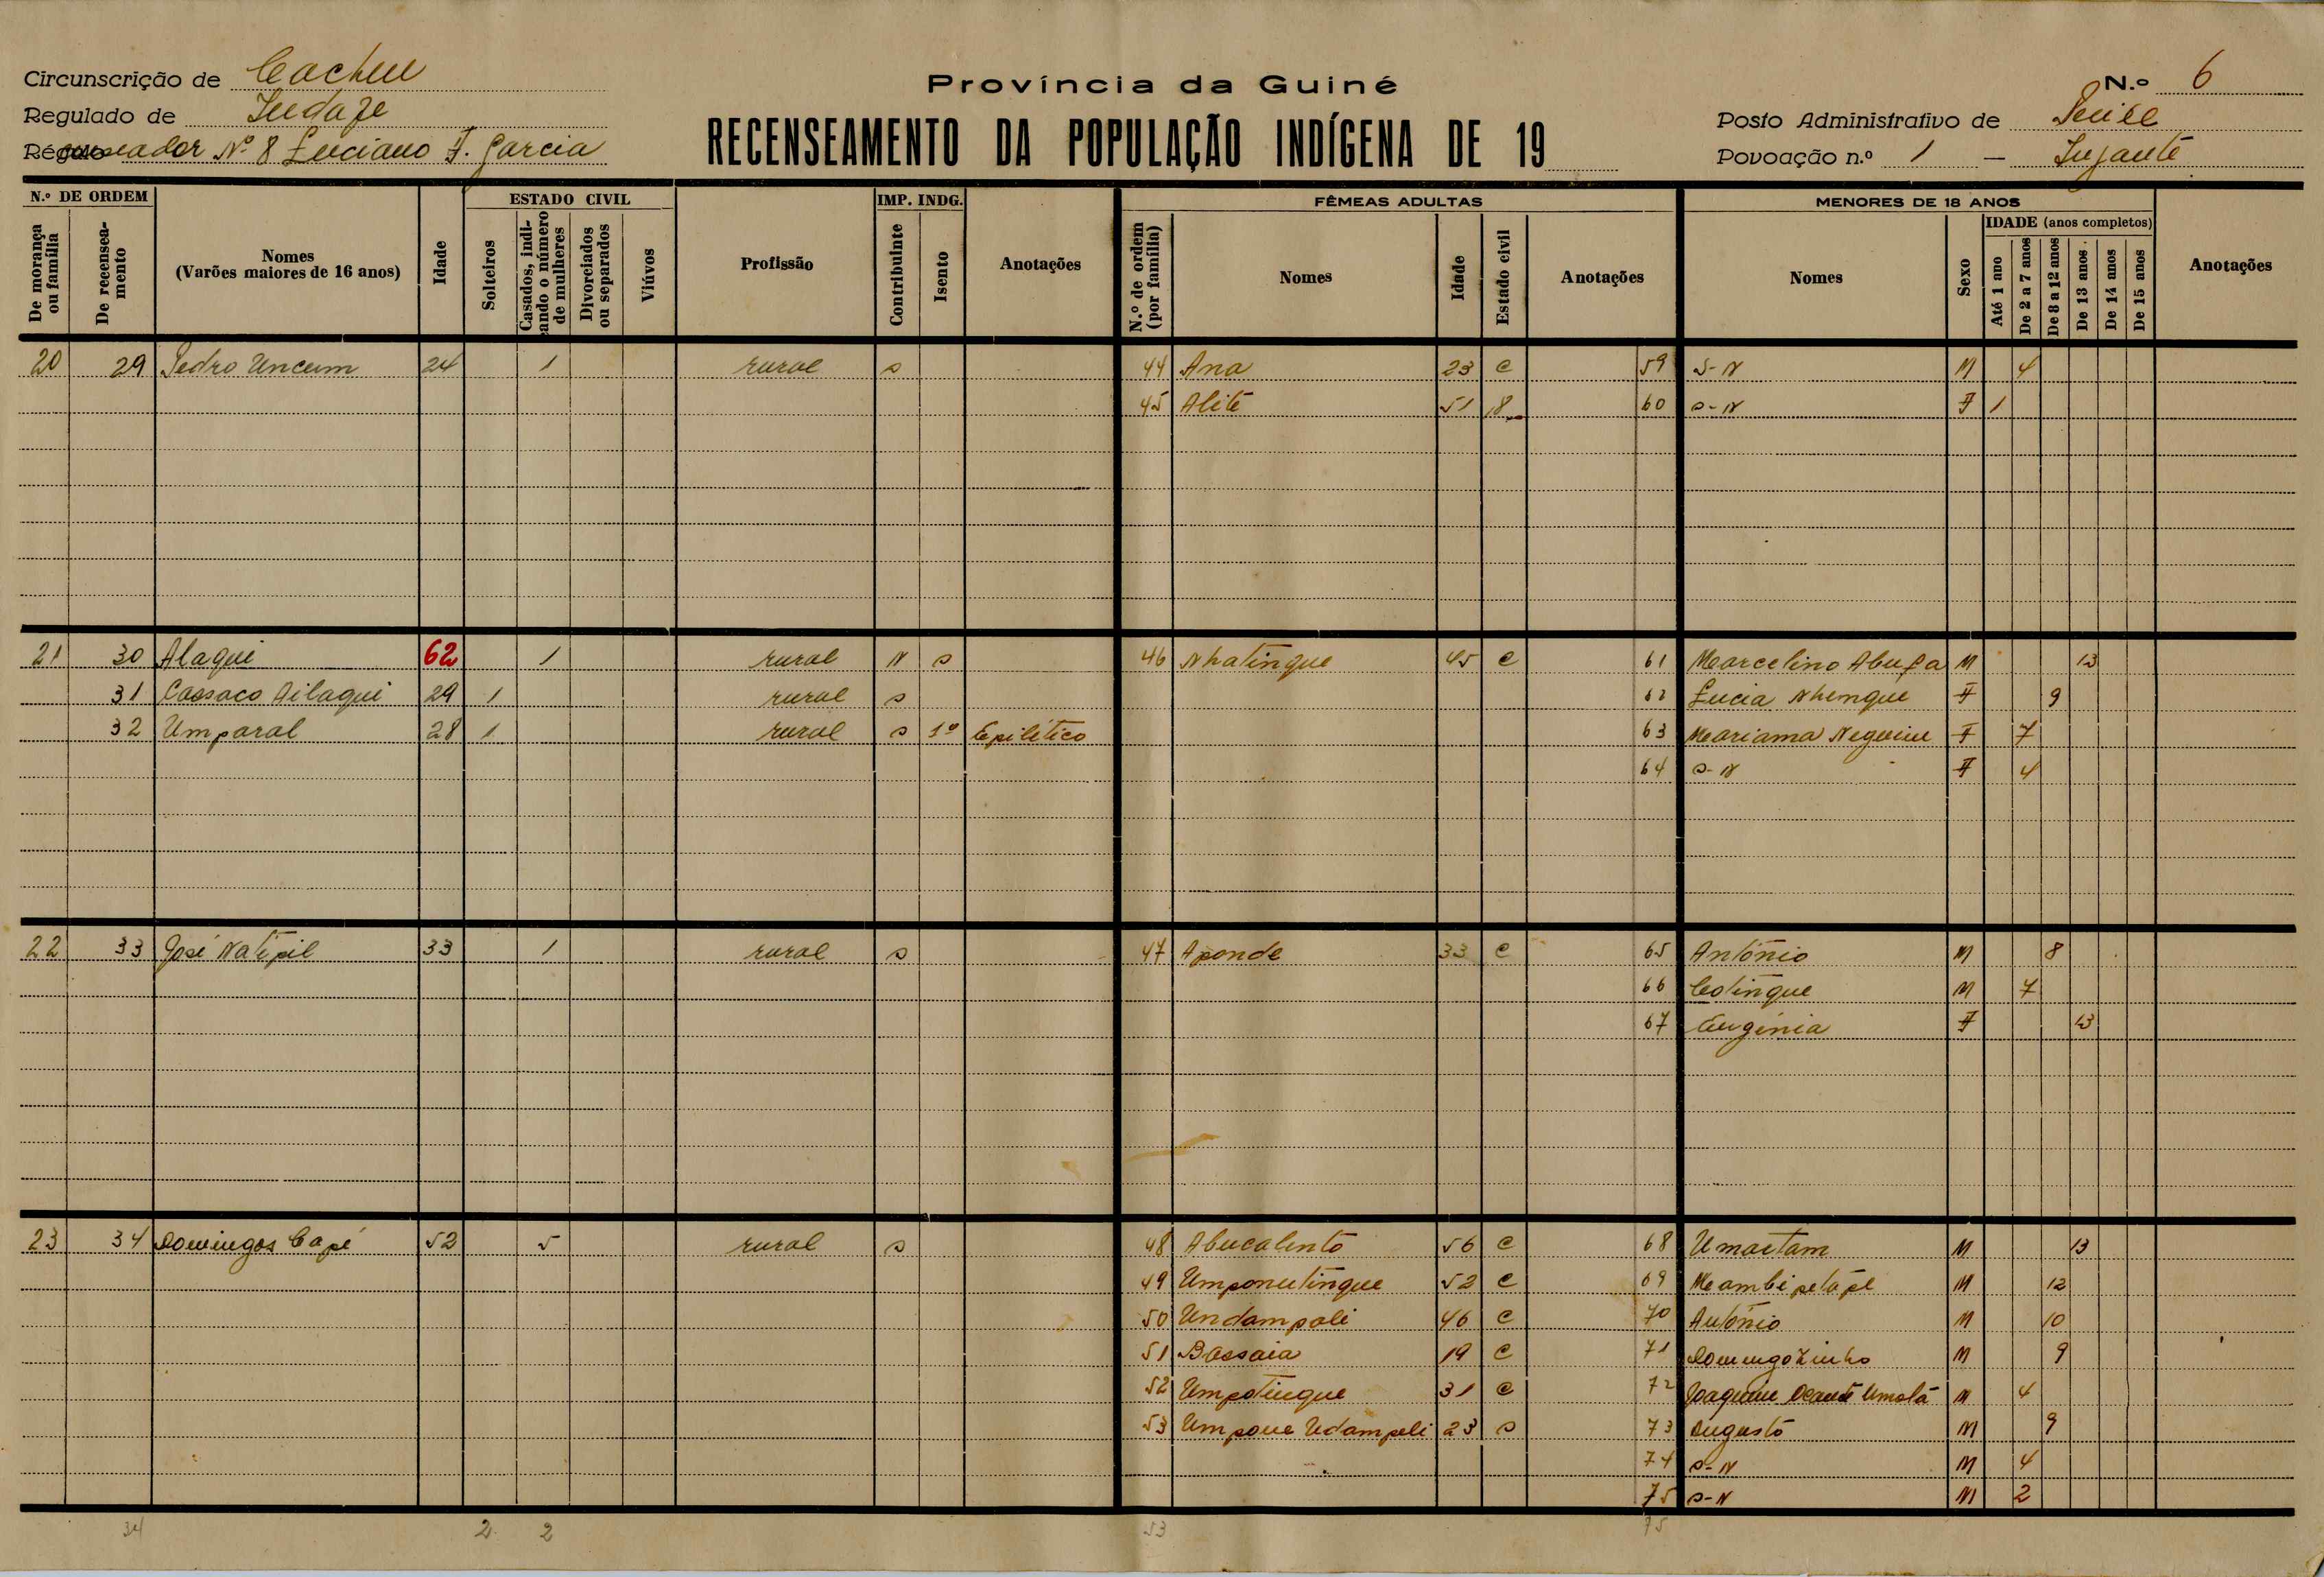 Circunscrição de Cacheu
Regulado de
Régulo N.º 8 Luciano F. Garcia
Província da Guiné
RECENSEAMENTO DA POPULAÇÃO INDÍGENA DE 19
N.º 6
Posto Administrativo de
Povoação n.º 1 —
N.º DE ORDEM
De morança ou família
De recenseamento
Nomes
(Varões maiores de 16 anos)
Idade
ESTADO CIVIL
Solteiros
Casados, indicando o número de mulheres
Divorciados ou separados
Viúvos
Profissão
IMP. INDG.
Contribuinte
Isento
Anotações
FÊMEAS ADULTAS
N.º de ordem (por família)
Nomes
Idade
Estado civil
Anotações
MENORES DE 18 ANOS
Nomes
Sexo
IDADE (anos completos)
Até 1 ano
De 2 a 7 anos
De 8 a 12 anos
De 13 anos
De 14 anos
De 15 anos
Anotações
20 29 Pedro Uncum 24 1 rural s 44 Ana 23 c 59 S-N M 4
45 Alite 51 60 S-N F 1
21 30 Alaqui 62 1 rural N s 46 Nhatingue 45 c 61 Marcelino M 13
31 Cassaco Ailaqui 29 1 rural s 62 Lucia Nhengue F 9
32 Umparal 28 1 rural s 1º Epilético 63 Mariama F 7
64 S-N F 4
22 33 José Natipil 33 1 rural s 47 Aponde 33 c 65 António M 8
66 Cotingue M 7
67 Eugénia F 13
23 34 Domingos Capé 52 5 rural s 48 Abucalento 56 c 68 Umaetam M 13
49 Umponutingue 52 c 69 M 12
50 Undampali 46 c 70 António M 10
51 Bassaia 19 c 71 Domingozinho M 9
52 Umpotingue 31 c 72 Joaquim M 4
53 23 s 73 Augusto M 9
74 S-N M 4
75 S-N M 2
34 2 2 53 75